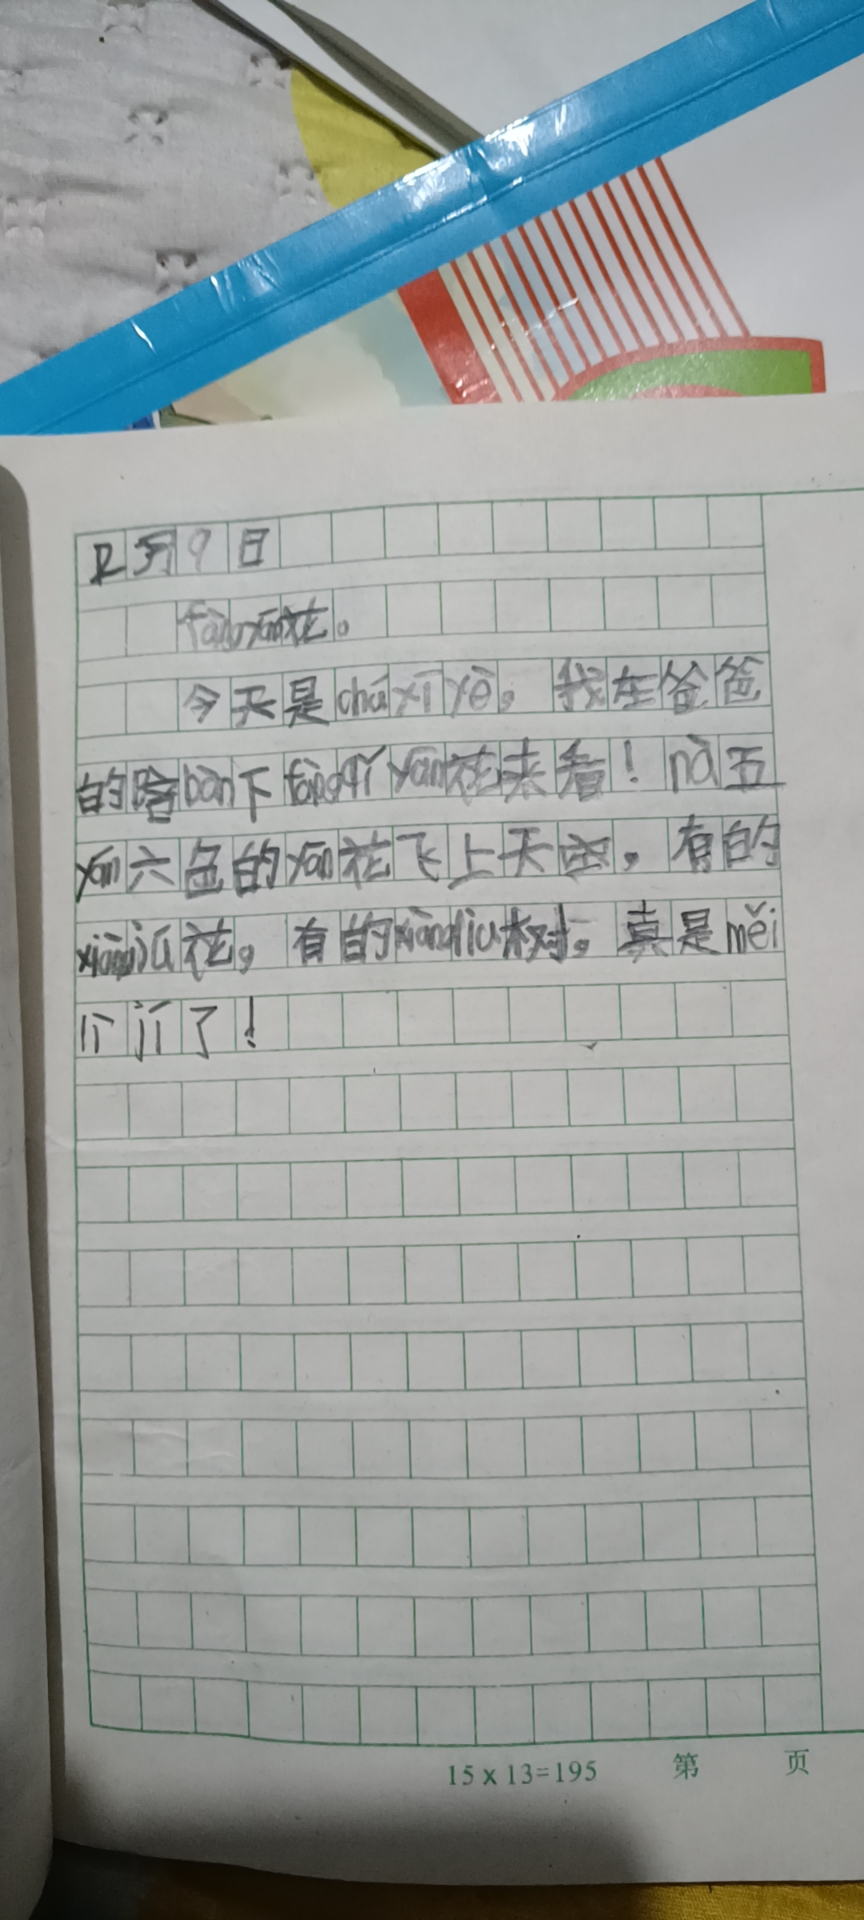 2月9日
fàngyān花。
今天是chúxīyè，我在爸爸
的陪bàn下fàngqǐyān花来看！nà五
yán六色的yān花飞上天空，有的
xiàngjú花，有的xiàngliǔ树。真是měi
jí了！
15×13=195 第 页